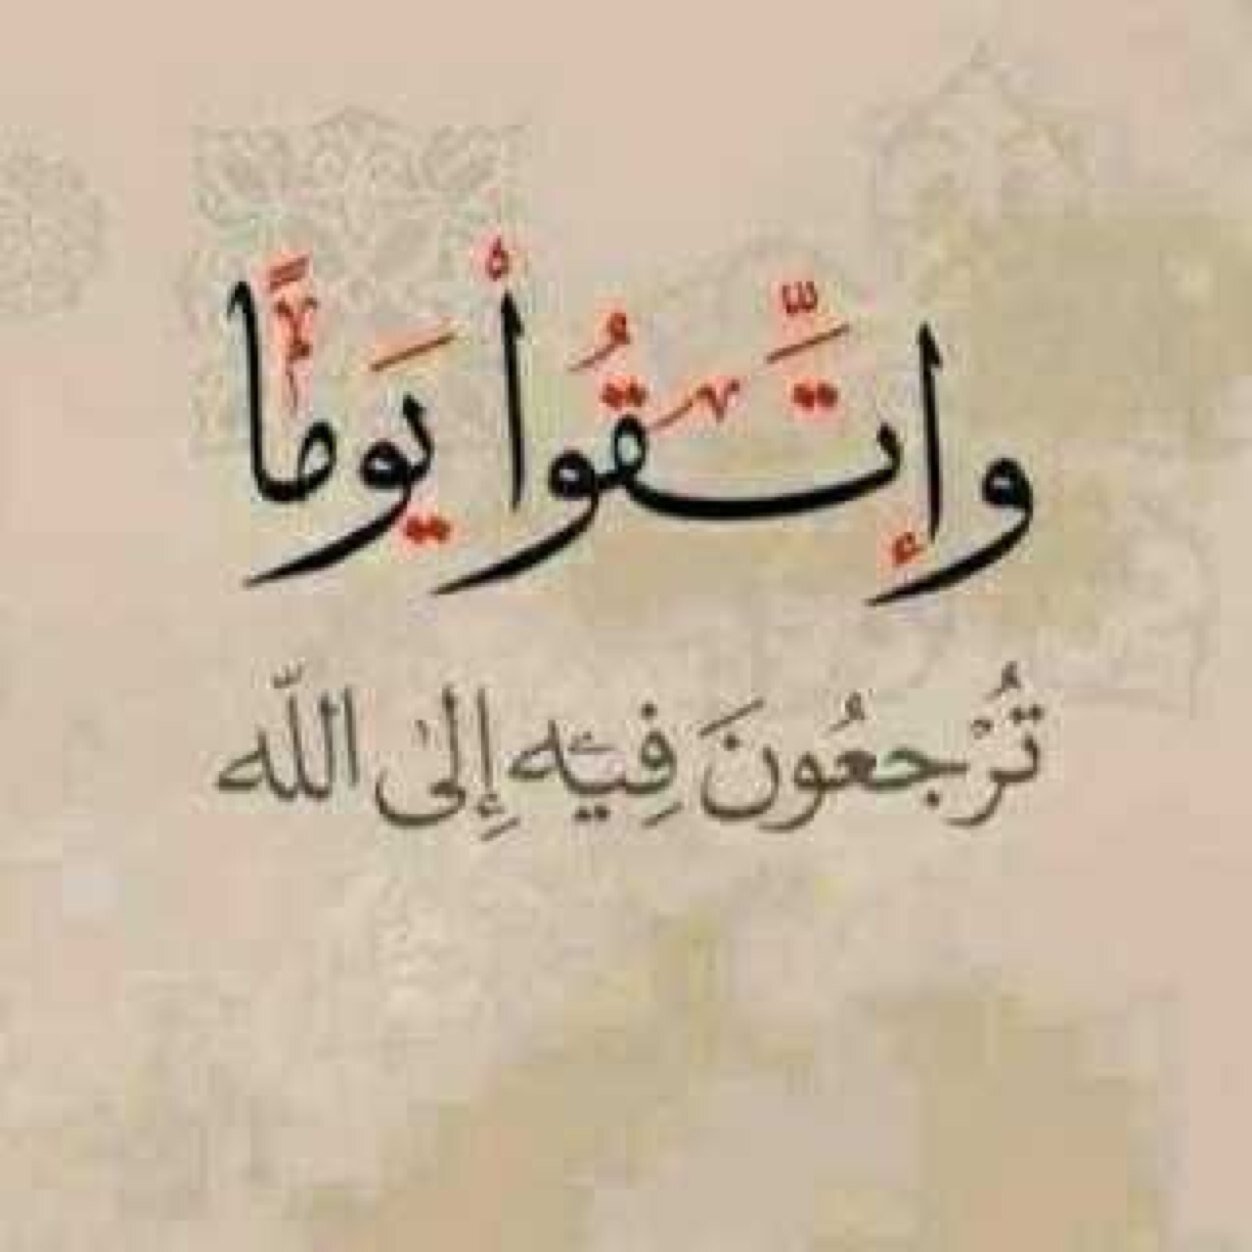 وإتَّقُوأْ يَومًا
تُرْجعُونَ فِيْه إِلىٰ اللّه